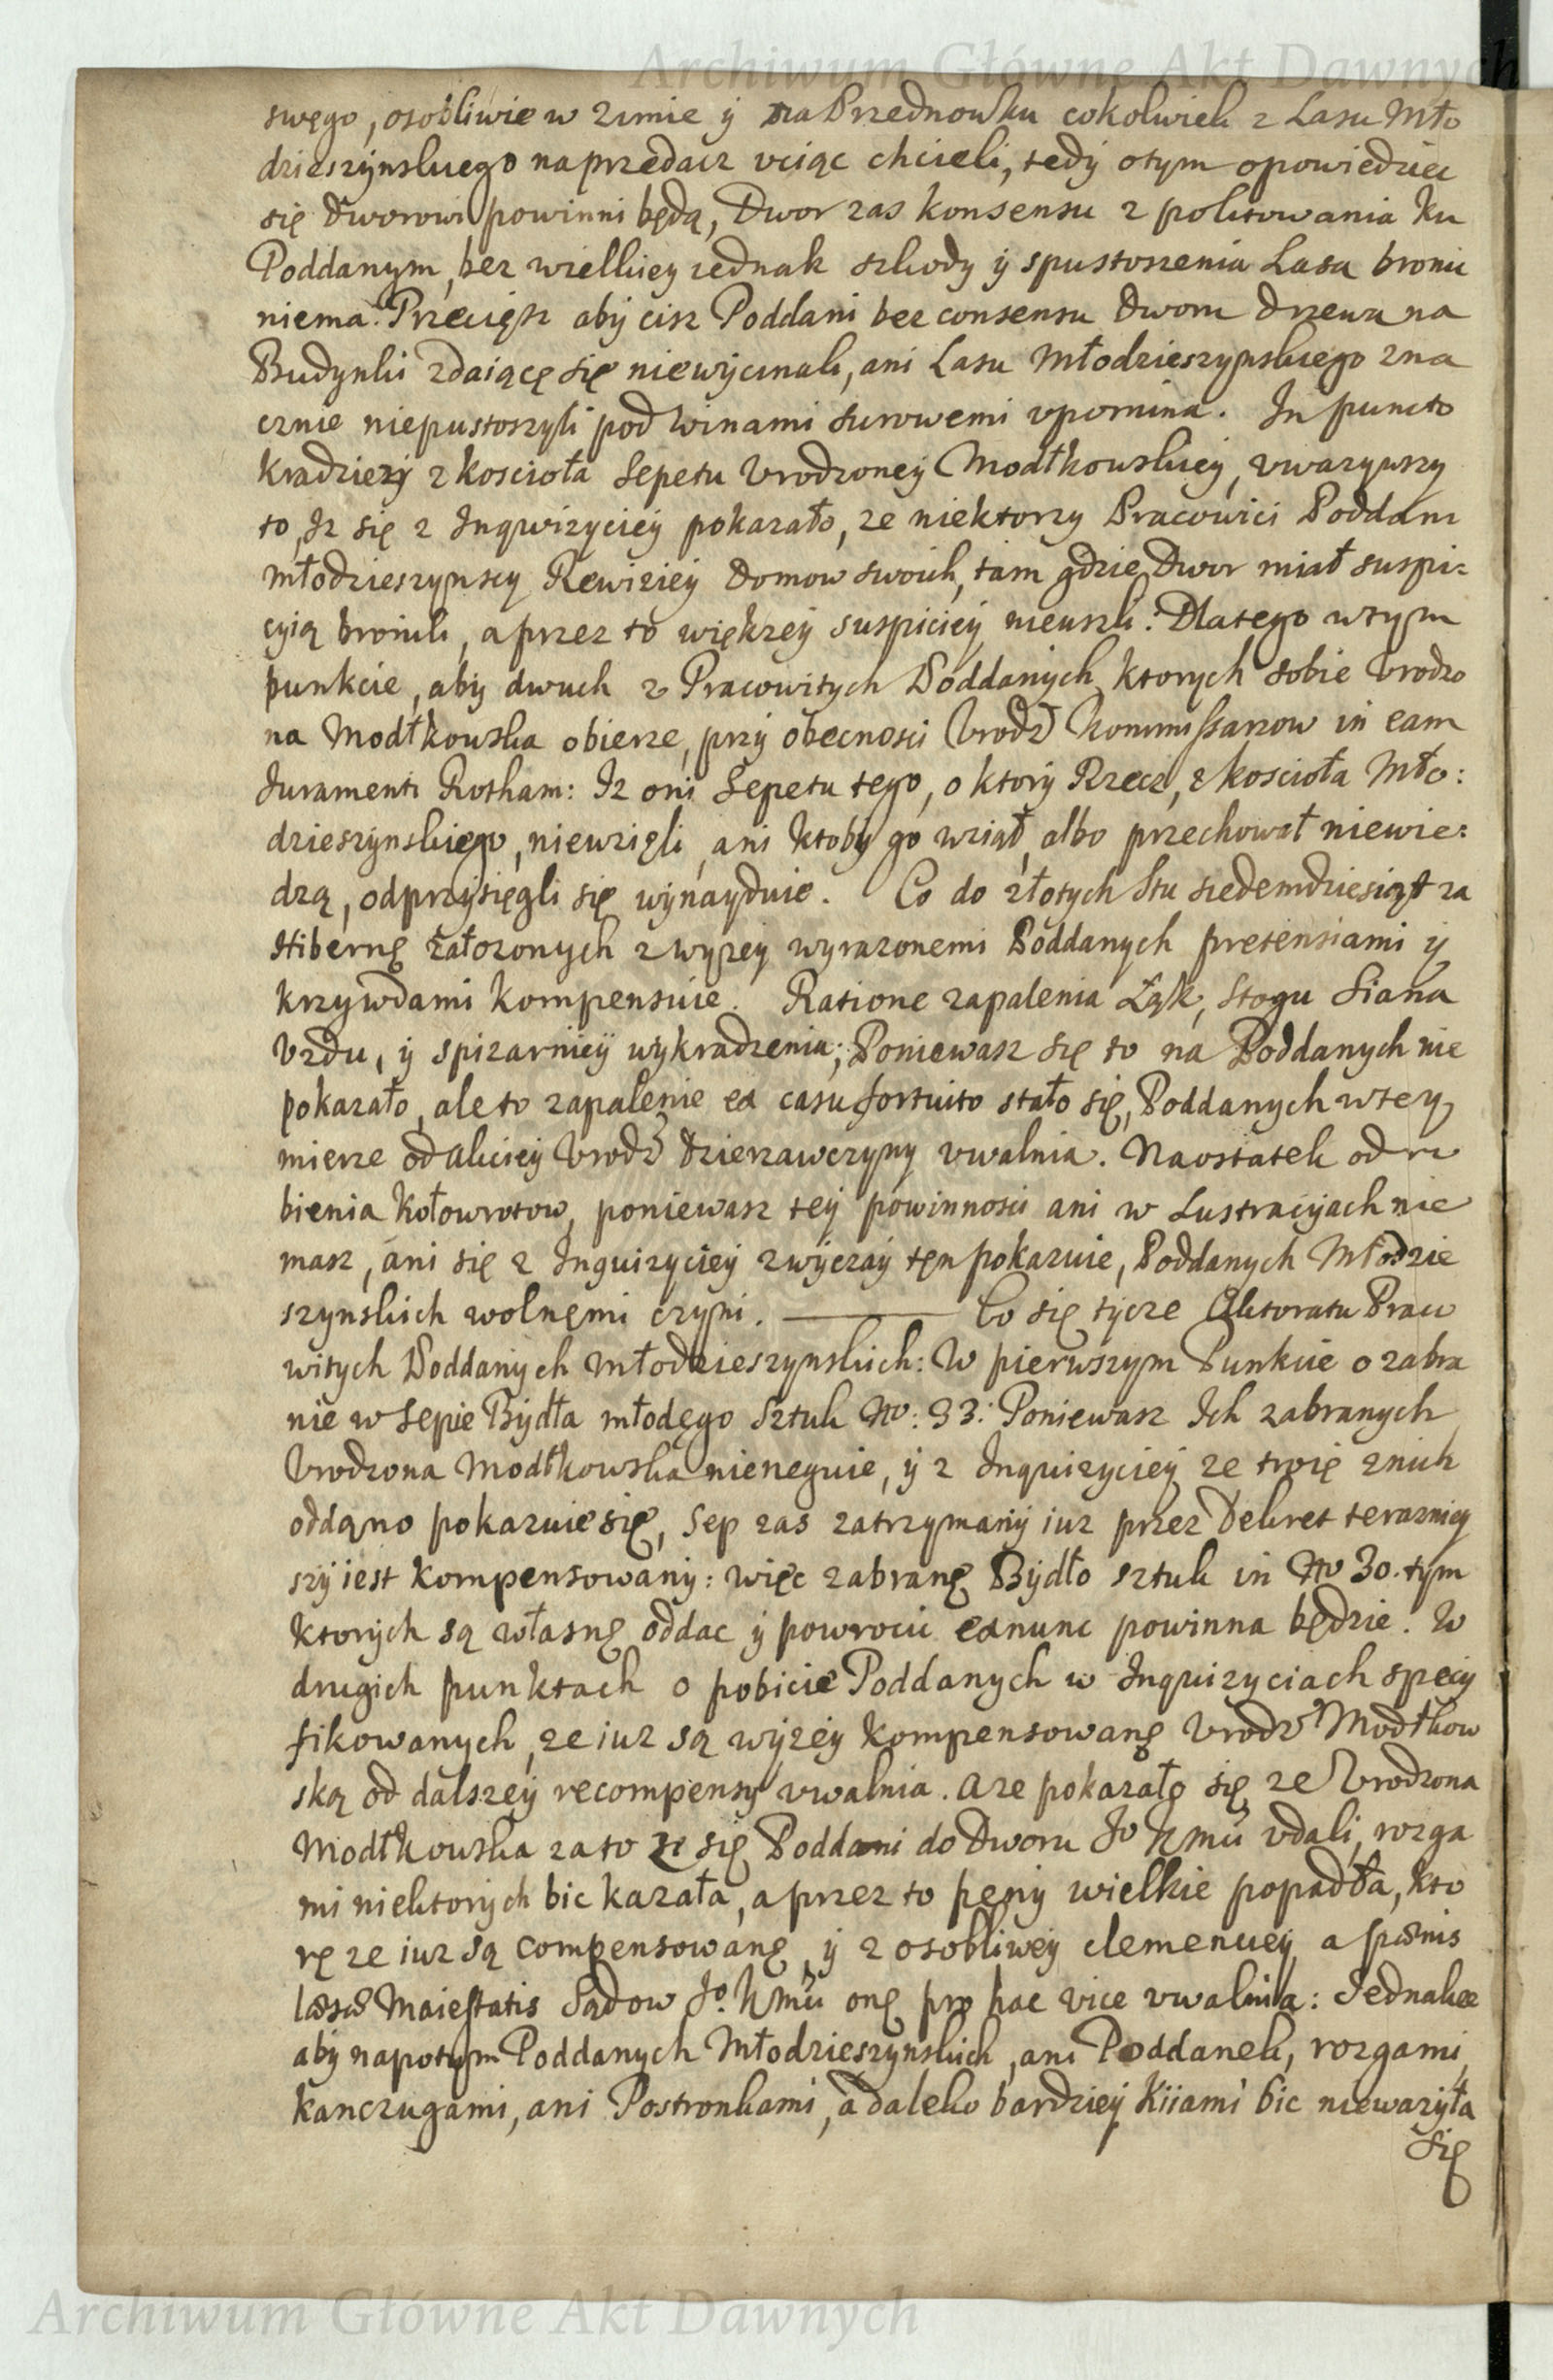 Archiwum Główne Akt Dawnych
swęgo, osobliwie w zimie ÿ na Przednowku cokolwiek z Lasu Mło
dzieszÿnskiego naprzedacz vciąc chcieli, tedÿ otym opowiedziec
się Dworowi powinni będą, Dwor zas konsensu z politowania ku
Poddanym, bez wielkieÿ iednak szkodÿ ÿ spustoszenia Lasa bronic
niema. Przecięsz abÿ cisz Poddani bez consensu Dworu drzewa na
Budynki zdaiącę się niewÿcinali, ani Lasu Młodzieszynskiego zna
cznie niepustoszyli pod winami surowemi vpomina. In puncto
kradzieżÿ z koscioła Sepetu Vrodzoneÿ Modłkowskieÿ, vwazywszy
to, Iz się z Inqwizycieÿ pokazało, ze niektorzy Pracowici Poddani
młodzieszynscy Rewizieÿ domow swoich, tam gdzie Dwor miał suspi=
cyią bronili, aprzez to większeÿ suspicieÿ nieuszli: Dlatego wtym
punkcie, abÿ dwuch z Pracowitych Poddanÿch ktorych sobie Vrodzo
na Modłkowska obierze, przÿ obecnosci Vrodz Kommissarzow in eam
Iuramenti Rotham: Iz oni Sepetu tego, o ktorÿ Rzecz, z koscioła Mło:
dzieszÿnskiego, niewzięli, ani ktobÿ go wziął, albo przechował niewie:
dzą, odprzÿsięgli się wÿnaÿduie. Co do złotych Stu siedemdziesiąt za
Hibernę załozonych z wyzeÿ wyrazonemi Poddanych pretensiami ÿ
krzywdami kompensuie. Ratione zapalenia Łąk, Stogu Siana
Vzdu, ÿ spizarnieÿ wykradzenia; Poniewasz się to na Poddanych nie
pokazało, ale to zapalenie ex casu fortuito stało się, Poddanych wteÿ
mierze od akcieÿ Vrodz dzierzawczyny vwalnia. Naostatek od ro
bienia kołowrotow, poniewasz teÿ powinnosci ani w Lustracÿach nie
masz, ani się z Inquizycieÿ zwÿczaÿ tęn pokazuie, Poddanych Młodzie
szynskich wolnęmi czÿni. Co się tÿcze Aktoratu Praco
witych Poddanÿch młodzieszynskich: W pierwszym Punkcie o zabra
nie w Sepie Bÿdła młodęgo Sztuk No: 33: Poniewasz Ich zabranych
Vrodzona Modłkowska nieneguie, ÿ z Inquizycieÿ ze troię znich
oddąno pokazuie się, Sep zas zatrzymanÿ iuz przez Dekret terazniey
szÿ iest kompensowanÿ: więc zabranę Bÿdło sztuk in No 30. tym
ktorÿch są własnę oddac ÿ powrocic exnunc powinna będzie. W
drugich punktach o pobicie Poddanych w Inquizyciach specy
fikowanych, ze iuz są wÿzeÿ kompensowanę Vrodz Modłkow
ską od dalszeÿ recompensy vwalnia. a ze pokazało się ze Vrodzona
Modłkowska za to ze się Poddani do Dworu Jo Kmci vdali, rozga
mi niektorÿch bic kazała, aprzez to pęnÿ wielkie popadła, kto
rę ze iuz są compensowanę, ÿ z osobliweÿ clemencieÿ a pœnis
læsæ Maiestatis Sądow Jo. Kmci onę pro hac vice vwalnia: Jednakze
abÿ napotym Poddanych Młodzieszynskich, ani Poddanek, rozgami,
kanczugami, ani Postronkami, a daleko bardzieÿ Kiiami bic niewazÿła
Się
Archiwum Główne Akt Dawnych